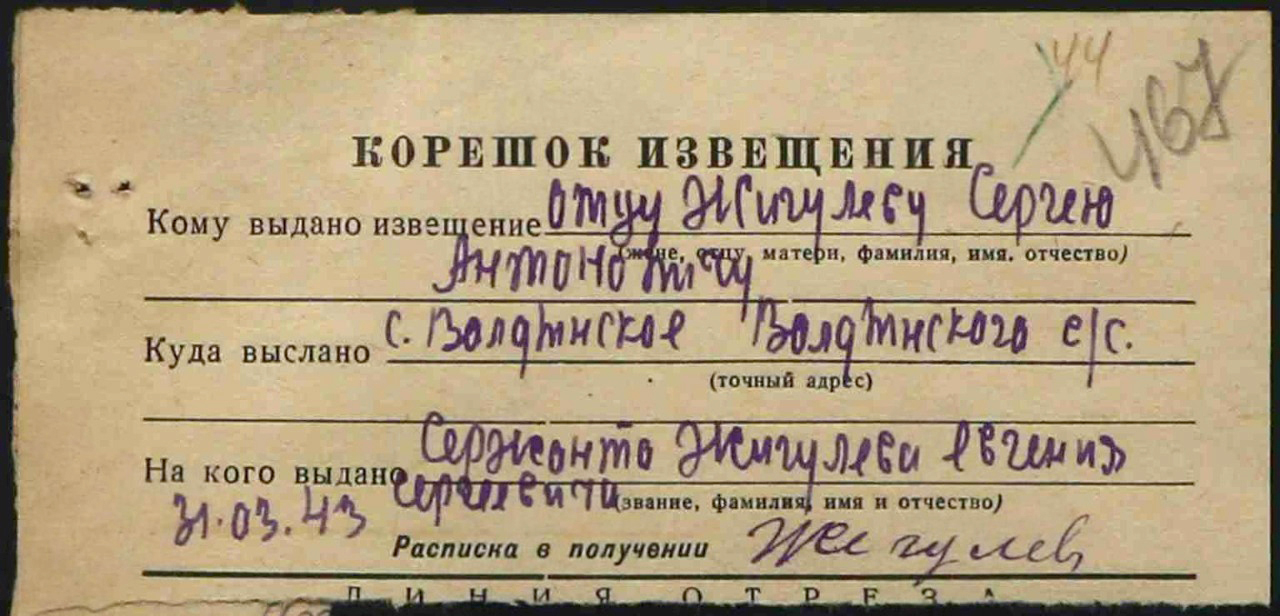 44
467
КОРЕШОК ИЗВЕЩЕНИЯ
Кому выдано извещение отцу Жигулеву Сергею
(жене, отцу, матери, фамилия, имя, отчество)
Антоновичу
Куда выслано с. Волдинское Волдинского с/с.
(точный адрес)
На кого выдано Сержанта Жигулева Евгения
Сергеевича (звание, фамилия, имя и отчество)
31.03.43
Расписка в получении Жигулев
ЛИНИЯ ОТРЕЗА